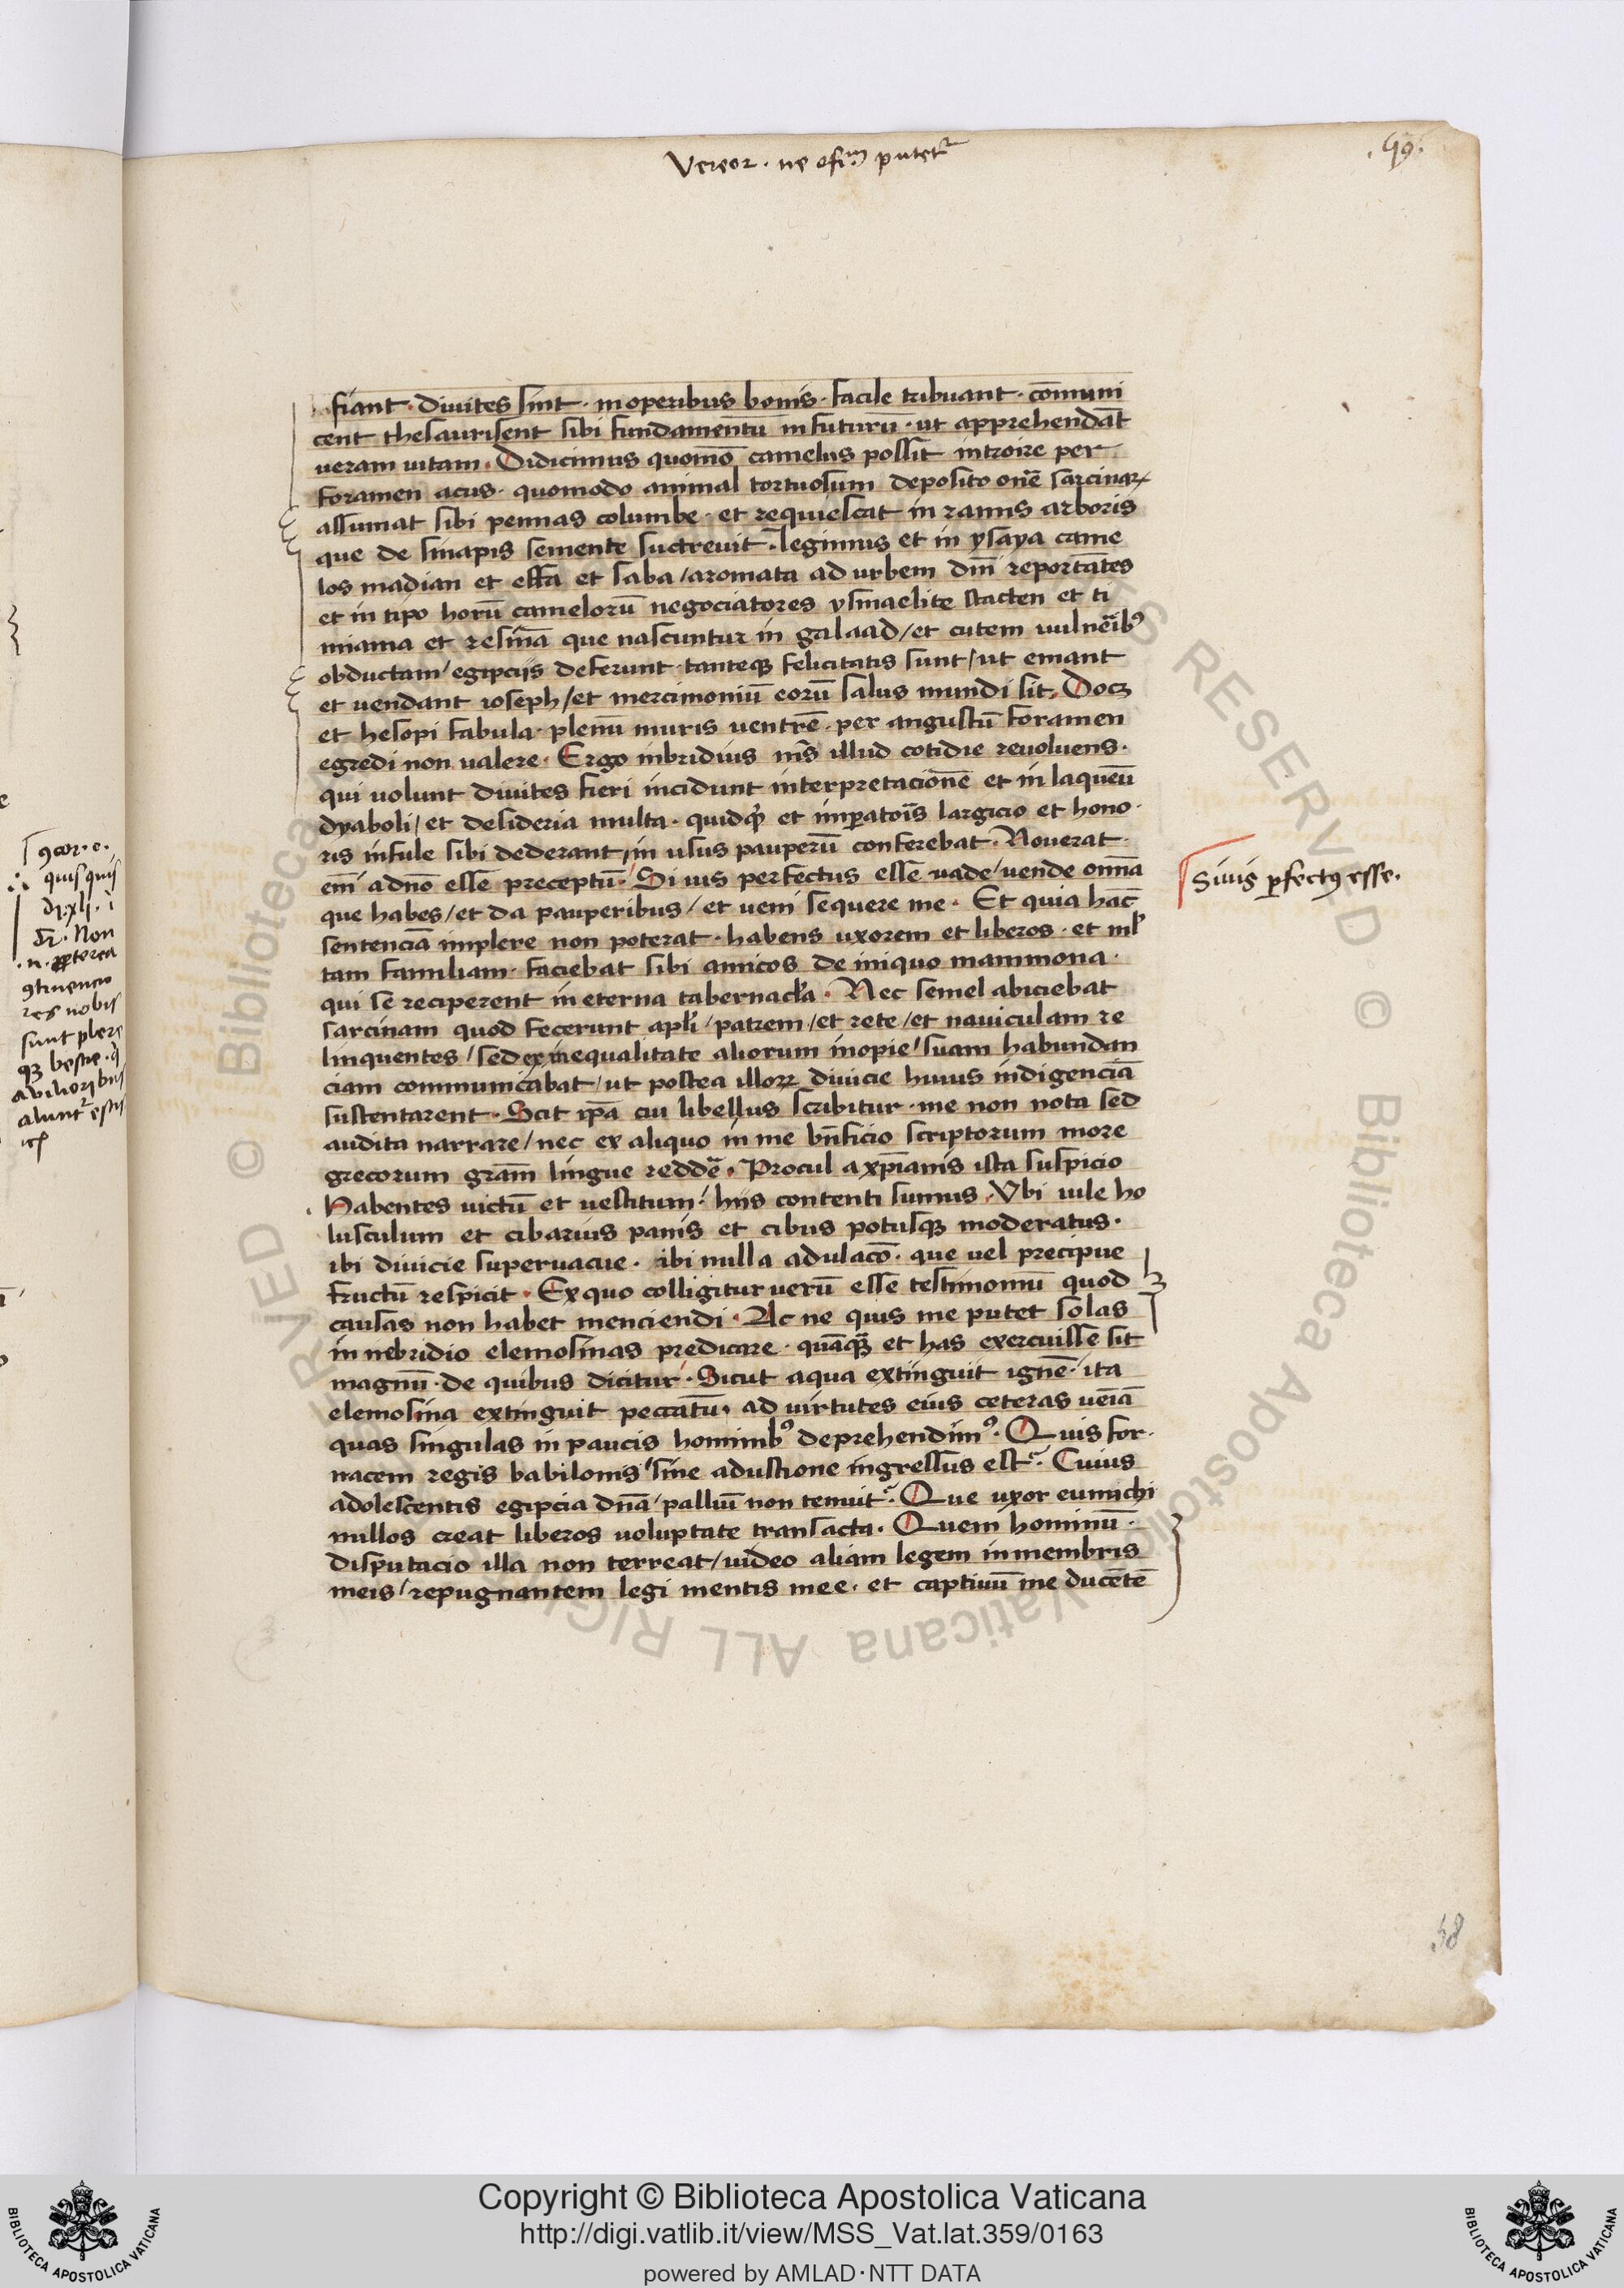 Vereor · ne ɔfiꝫ putetᷣ
. 59.
fiant · diuites sint · in operibus bonis · facile tribuant · cōmuni
cent thesaurisent sibi fundamentū in futurū · ut apprehendāt
ueram uitam · Didicimus quomō camelus possit introire per
foramen acus · quomodo animal tortuosum deposito onē sarcinaꝝ
assumat sibi pennas columbe · et requiescat in ramis arboris
que de sinapis semente succreuit · legimus et in ysaya came
los madian et effa et saba / aromata ad urbem dn̄i reportātes
et in tipo horū camelorū negociatores ysmaelite stacten et ti
miama et resinā que nascuntur in galaad / et cutem uulnēibꝰ
obductam / egipcijs deferunt · tanteqꝫ felicitatis sunt / ut emant
et uendant ioseph / et mercimoniū eorū salus mundi sit · Docꝫ
et hesopi fabula · plenū muris uentrē · per angustū foramen
egredi non ualere · Ergo inbridius nr̄s illud cotidie reuoluens ·
qui uolunt diuites fieri incidunt interpretacionē et in laqueū
dyaboli / et desideria multa · quidqͥd et imꝑatoīs largicio et hono
ris infule sibi dederant / in usus pauperū conferebat · Nouerat
em̄ a dn̄o esse preceptū · Si uis perfectus esse uade / uende omnā
que habes / et da pauperibus / et ueni sequere me · Et quia hanc̄
sentenciā implere non poterat · habens uxorem et liberos · et ml̓
tam familiam · faciebat sibi amicos de iniquo mammona ·
qui se reciperent in eterna tabernacl̓a · Nec semel abiciebat
sarcinam quod fecerunt apl̓i / patrem / et rete / et nauiculam re
linquentes / sed ex inequalitate aliorum inopie / suam habundan
ciam communicabat / ut postea illorꝝ diuicie huius indigenciā
sustentarent · Scit ip̄a cui libellus scribitur · me non nota sed
audita narrare / nec ex aliquo in me bn̄ficio scriptorum more
grecorum grām lingue reddē · Procul a xp̄ianis ista suspicio
Habentes uictū et uestitum / hijs contenti sumus · Vbi uile ho
lusculum et cibarius panis et cibus potusqꝫ moderatus ·
ibi diuicie superuacue · ibi nulla adulacō · que uel precipue
fructū respicit · Ex quo colligitur uerū esse testimoniū quod
causas non habet menciendi · Ac ne quis me putet solas
in nebridio elemosinas predicare · quāqꝫ et has exercuisse sit
magnū · de quibus dicitur · Sicut aqua extinguit ignē · ita
elemosina extinguit peccatū · ad uirtutes eius ceteras ueiā
quas singulas in paucis hominibꝰ deprehendimꝰ · Quis for
nacem regis babilonis / sine adustione ingressus est · Cuius
adolescentis egipcia dn̄a / palliū non tenuit · Que uxor eunuchi
nullos creat liberos uoluptate transacta · Quem hominū ·
disputacio illa non terreat / uideo aliam legem in membris
meis / repugnantem legi mentis mee · et captiuū me ducētē
Si uis ꝑfectꝰ esse .
quisquis
Non
res nobis
sunt plere
qꝫ bestie
58
© Biblioteca Apostolica Vaticana ALL RIGHTS RESERVED © Biblioteca Apostolica Vaticana ALL RIGHTS RESERVED
Copyright © Biblioteca Apostolica Vaticana
http://digi.vatlib.it/view/MSS_Vat.lat.359/0163
powered by AMLAD·NTT DATA
BIBLIOTECA APOSTOLICA VATICANA
BIBLIOTECA APOSTOLICA VATICANA